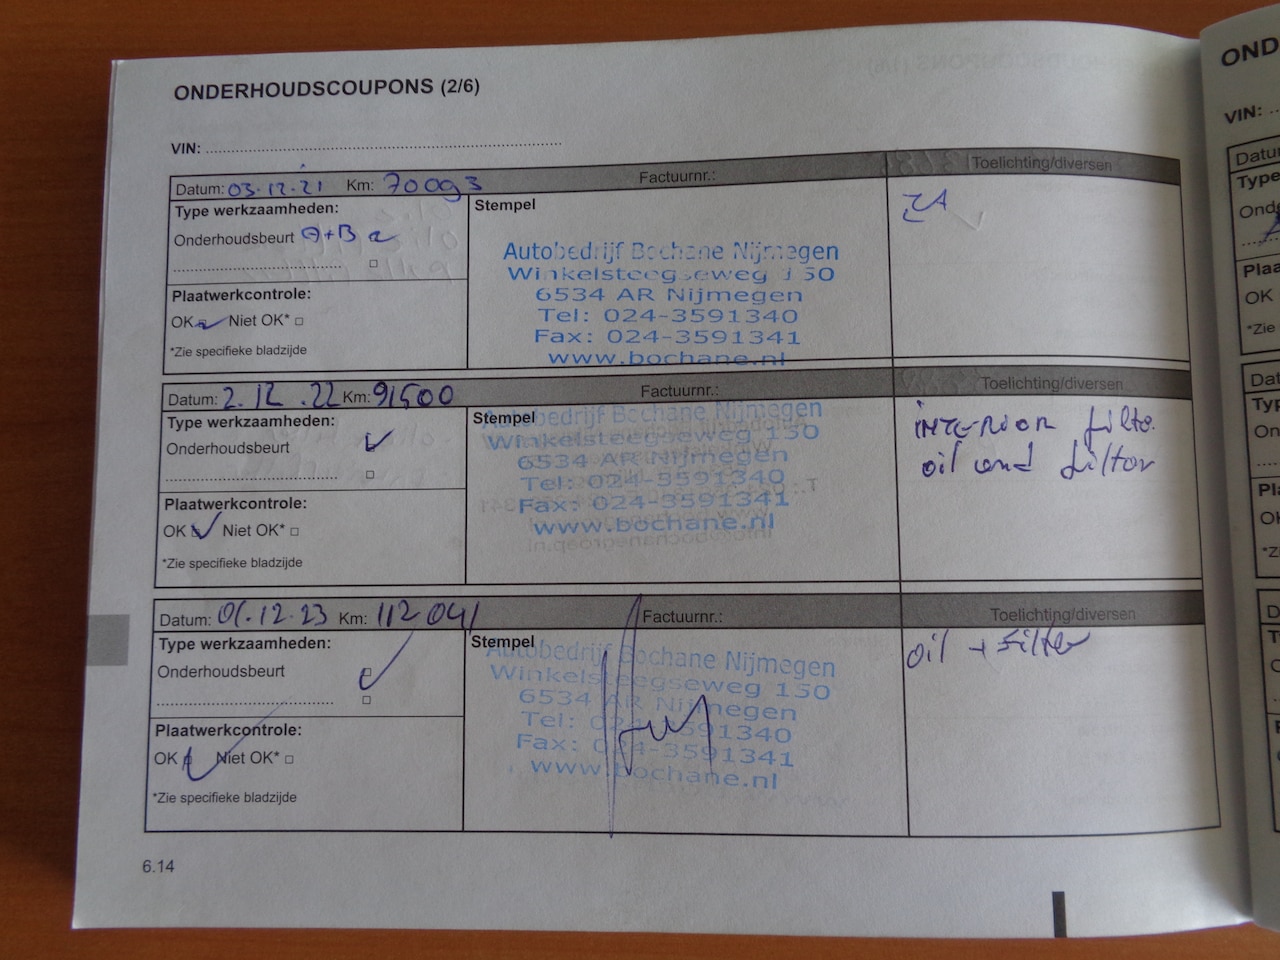 ONDERHOUDSCOUPONS (2/6)
VIN:
Datum: 03.12.21 Km: 70093 Factuurnr.: Toelichting/diversen
Type werkzaamheden:
Stempel
Onderhoudsbeurt A+B
Autobedrijf Bochane Nijmegen
Winkelsteegseweg 150
6534 AR Nijmegen
Tel: 024-3591340
Fax: 024-3591341
www.bochane.nl
Plaatwerkcontrole:
OK Niet OK*
*Zie specifieke bladzijde
Datum: 2.12.22 Km: 91500 Factuurnr.: Toelichting/diversen
Type werkzaamheden:
Onderhoudsbeurt
Stempel
Autobedrijf Bochane Nijmegen
Winkelsteegseweg 150
6534 AR Nijmegen
Tel: 024-3591340
Fax: 024-3591341
www.bochane.nl
INTERIOR filte.
oil and filter
Plaatwerkcontrole:
OK Niet OK*
*Zie specifieke bladzijde
Datum: 01.12.23 Km: 112041 Factuurnr.: Toelichting/diversen
Type werkzaamheden:
Onderhoudsbeurt
Stempel
Autobedrijf Bochane Nijmegen
Winkelsteegseweg 150
6534 AR Nijmegen
Tel: 024-3591340
Fax: 024-3591341
www.bochane.nl
oil + filter
Plaatwerkcontrole:
OK Niet OK*
*Zie specifieke bladzijde
6.14
OND
VIN: